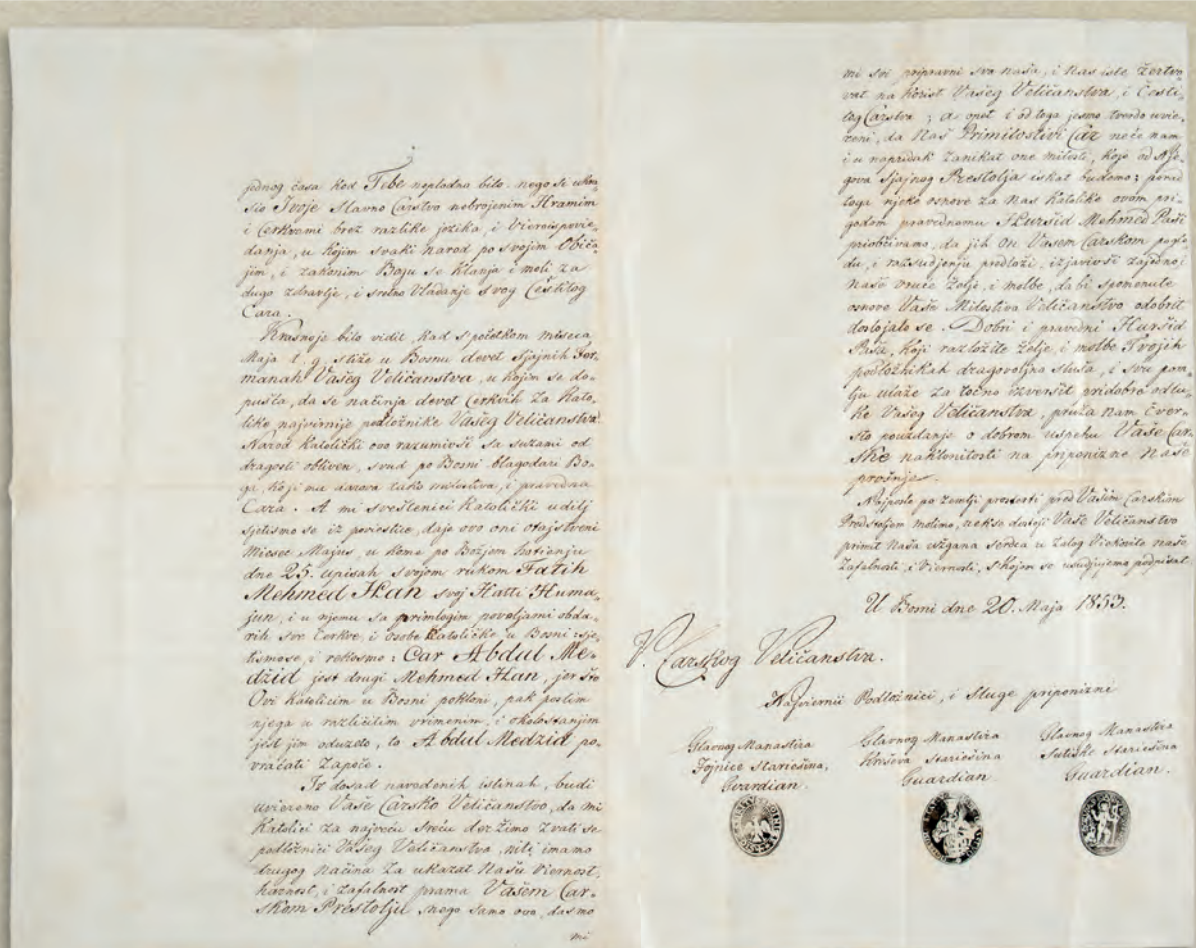 jednog časa kod Tebe neplodna bilo. nego si ukra„
sio Tvoje slavno Carstvo nebrojenim Hramim
i Cerkvami brez razlike jezika, i Vieroispovie„
danja, u kojim svaki narod po svojim Običa„
jim, i zakonim Bogu se klanja i moli za
dugo zdravlje, i sretno Vladanje svog Čestitog
Cara.
Krasno je bilo vidit, kad s početkom miseca
Maja t. g. stiže u Bosnu devet sjajnih Fer„
manah Vašeg Veličanstva, u kojim se do„
pušta, da se načinja devet Cerkvih za Kato„
like najvirnije podložnike Vašeg Veličanstva.
Narod Katolički ovo razumivši sa suzami od
dragosti obliven, svud po Bosni blagodari Bo„
ga, koji mu darova tako milostiva, i pravedna
Cara. A mi sveštenici Katolički udilj
sjetismo se iz poviestice, da je ovo oni otajstveni
Miesec Majus, u kome po Božjem hotienju
dne 25. upisah svojom rukom Fatih
Mehmed Han svoj Hatti Huma„
jun, i u njemu sa primlogim poveljami obda„
rih sve Cerkve, i osobe Katoličke u Bosni: sje„
tismose, i rekosmo: Car Abdul Me„
dzid jest drugi Mehmed Han, jer što
Ovi Katolicim u Bosni pokloni, pak poslim
njega u različitim vrimenim, i okolostanjim
jest jim oduzeto, to Abdul Medzid po„
vraćati započe.
Iz dosad navedenih istinah, budi
uviereno Vaše Carsko Veličanstvo, da mi
Katolici za najveću sreću deržimo zvati se
podložnici Vašeg Veličanstva, niti imamo
drugog načina za ukazat Našu Viernost,
harnost, i zafalnost prama Vašem Car„
skom Prestolju, nego samo ovo, da smo
mi
mi svi pripravni sva naša, i nas iste žertvo„
vat na korist Vašeg Veličanstva, i Česti„
tog Carstva; a opet i od toga jesmo tverdo uvie„
reni, da Naš Primilostivi Car neće nam
i u napridak zanikat one milosti, koje od Nje„
gova Sjajnog Prestolja iskat budemo; porad
toga njeke osnove za Nas Katolike ovom pri„
godom pravednomu Huršid Mehmed Paši
priobćivamo, da jih On Vašem Carskom pogle„
du, i razsudjenju predloži, izjavivši zajedno i
naše vruće želje, i molbe, da bi spomenute
osnove Vaše Milostivo Veličanstvo odobrit
dostojalo se. Dobri i pravedni Huršid
Paša, koji razložite želje, i molbe Tvojih
podložnikah dragovoljno sluša, i svu pom„
lju ulaže za točno izveršit pridobre odlu„
ke Vašeg Veličanstva, pruža nam čver„
sto pouzdanje o dobrom uspehu Vaše Car„
ske naklonitosti na priponizne Naše
prošnje.
Najposle po zemlji prosterti pred Vašim Carskim
Predstoljem molimo, nek se dostoji Vaše Veličanstvo
primit Naša užgana serdca u Zalog Viekovite naše
Zafalnosti, i Viernosti, s kojom se usudjujemo podpisat.
U Bosni dne 20. Maja 1853.
V. Carskog Veličanstva.
Najviernii Podložnici, i Sluge priponizni
Glavnog Manastira
Fojnice Stariešina,
Gvardian.
Glavnog Manastira
Kreševa Stariešina
Guardian.
Glavnog Manastira
Sutiske Stariešina
Guardian.